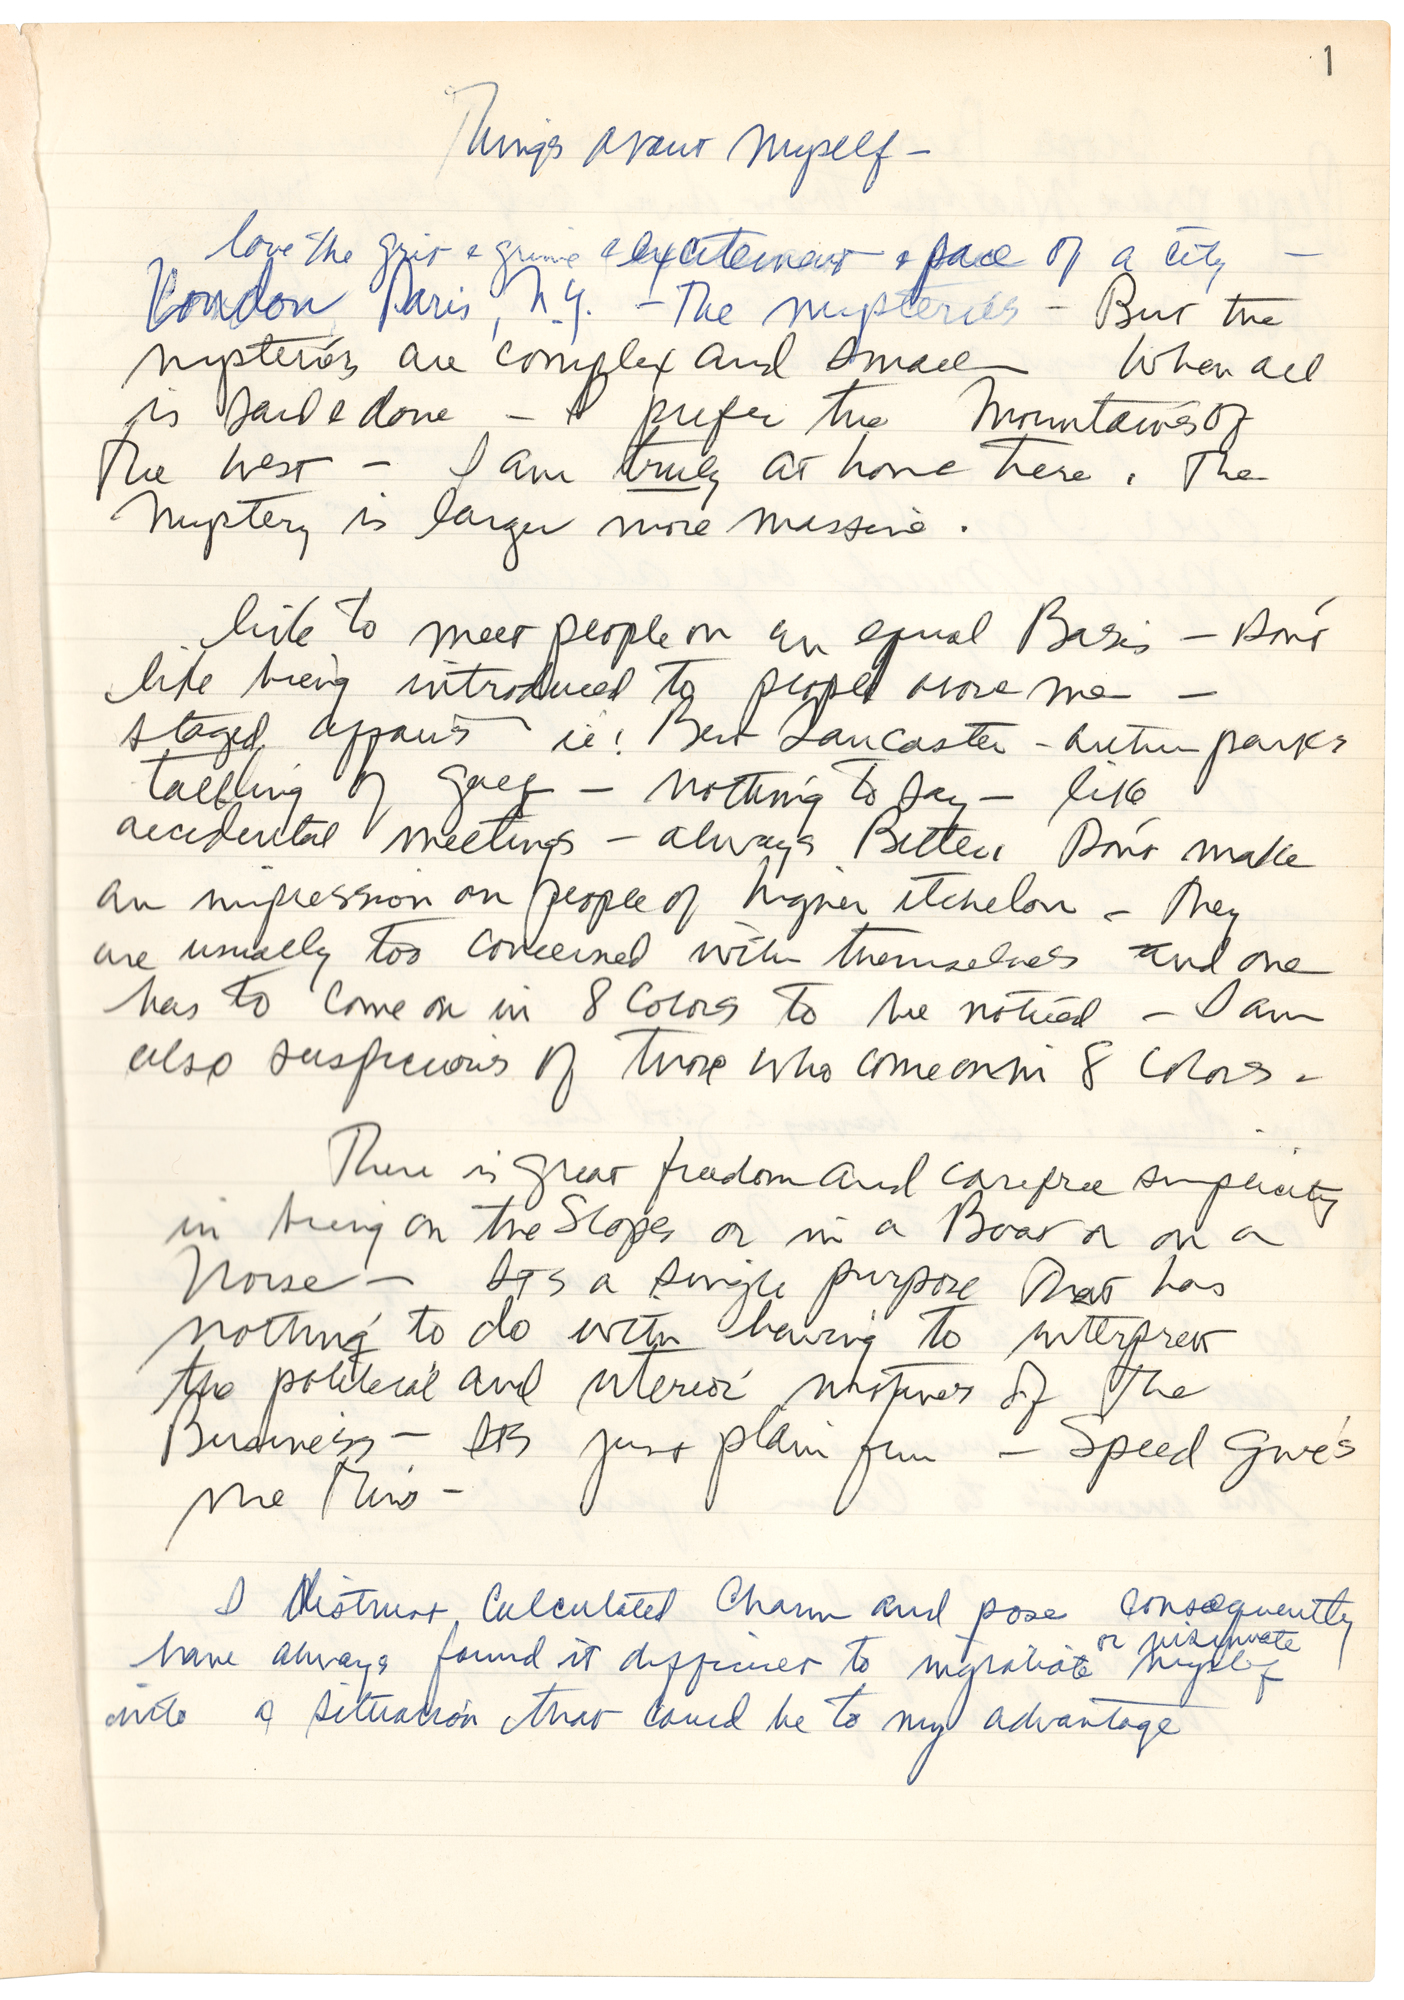 1
Things about myself –
love the grit & grime & excitement & pace of a city –
London, Paris, N.Y. – The mysteries – But the
mysteries are complex and small When all
is said & done – I prefer the Mountains of
The West – I am truly at home here. The
Mystery is larger more massive.
like to meet people on an equal Basis – Don't
like being introduced to people above me –
staged affairs ie: Bert Lancaster – Arthur parks
talking of golf – nothing to say – like
accidental meetings – always Better. Don't make
an impression on people of higher itchelon – They
are usually too concerned with themselves and one
has to come on in 8 Colors to be noticed – I am
also suspicious of those who come on in 8 Colors –
There is great freedom and carefree simplicity
in being on the Slopes or in a Boat or on a
Horse – Its a single purpose That has
nothing to do with having to interpret
the political and interior motives of The
Business – Its just plain fun – Speed Gives
me This –
I distrust calculated Charm and pose consequently
have always found it difficult to ingratiate or insinuate myself
into a situation that could be to my advantage